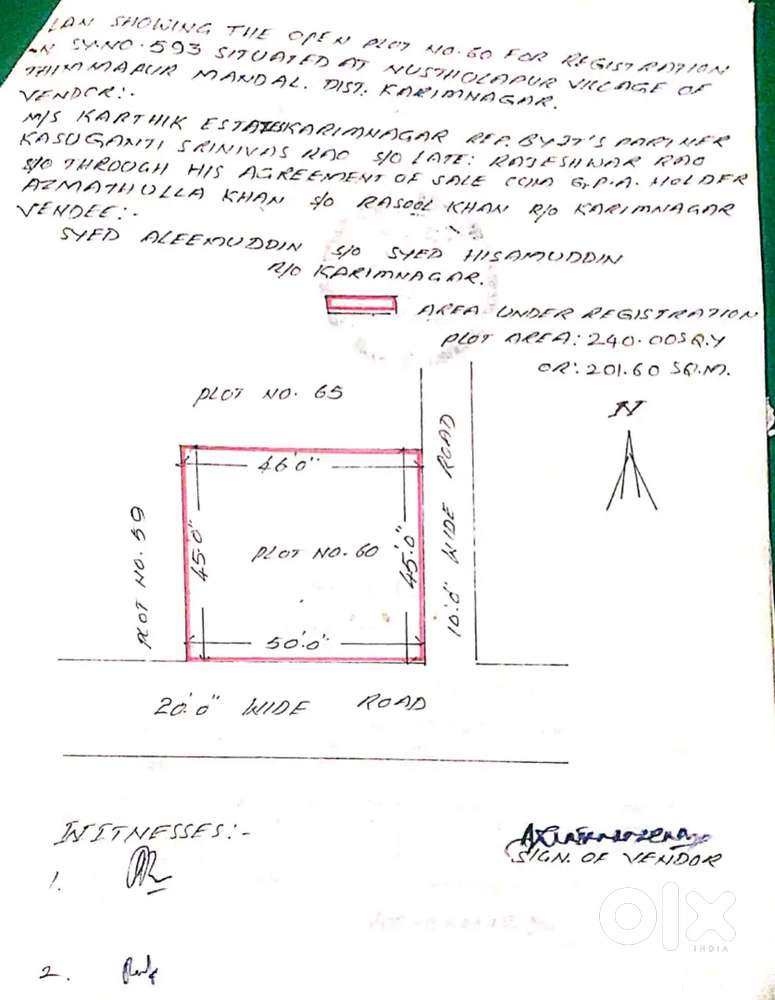 LAN SHOWING THE OPEN PLOT NO. 60 FOR REGISTRATION
-N SY.NO. 593 SITUATED AT NUSTHOLAPUR VILLAGE OF
THIMMAPUR MANDAL. DIST. KARIMNAGAR.
VENDOR:-
M/S KARTHIK ESTATES KARIMNAGAR REP. BY IT'S PARTNER
KASUGANTI SRINIVAS RAO S/O LATE: RAJESHWAR RAO
S/O THROUGH HIS AGREEMENT OF SALE CUM G.P.A. HOLDER
AZMATHULLA KHAN S/O RASOOL KHAN R/O KARIMNAGAR
VENDEE:-
SYED ALEEMUDDIN S/O SYED HISAMUDDIN
R/O KARIMNAGAR.
AREA UNDER REGISTRATION
PLOT AREA: 240.00 SQ.Y
OR: 201.60 SQ.M.
PLOT NO. 65
N
46'0"
10'.0" WIDE ROAD
PLOT NO. 59
45.0"
PLOT NO. 60
45'.0"
50'.0"
20'.0" WIDE ROAD
WITNESSES:-
SIGN. OF VENDOR
1.
2.
olx
INDIA